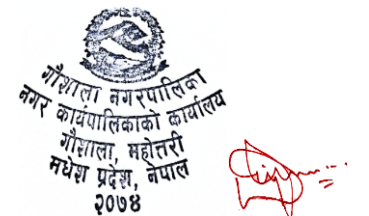 गौशाला नगरपालिका
नगर कार्यपालिकाको कार्यालय
गौशाला, महोत्तरी
मधेश प्रदेश, नेपाल
२०७४